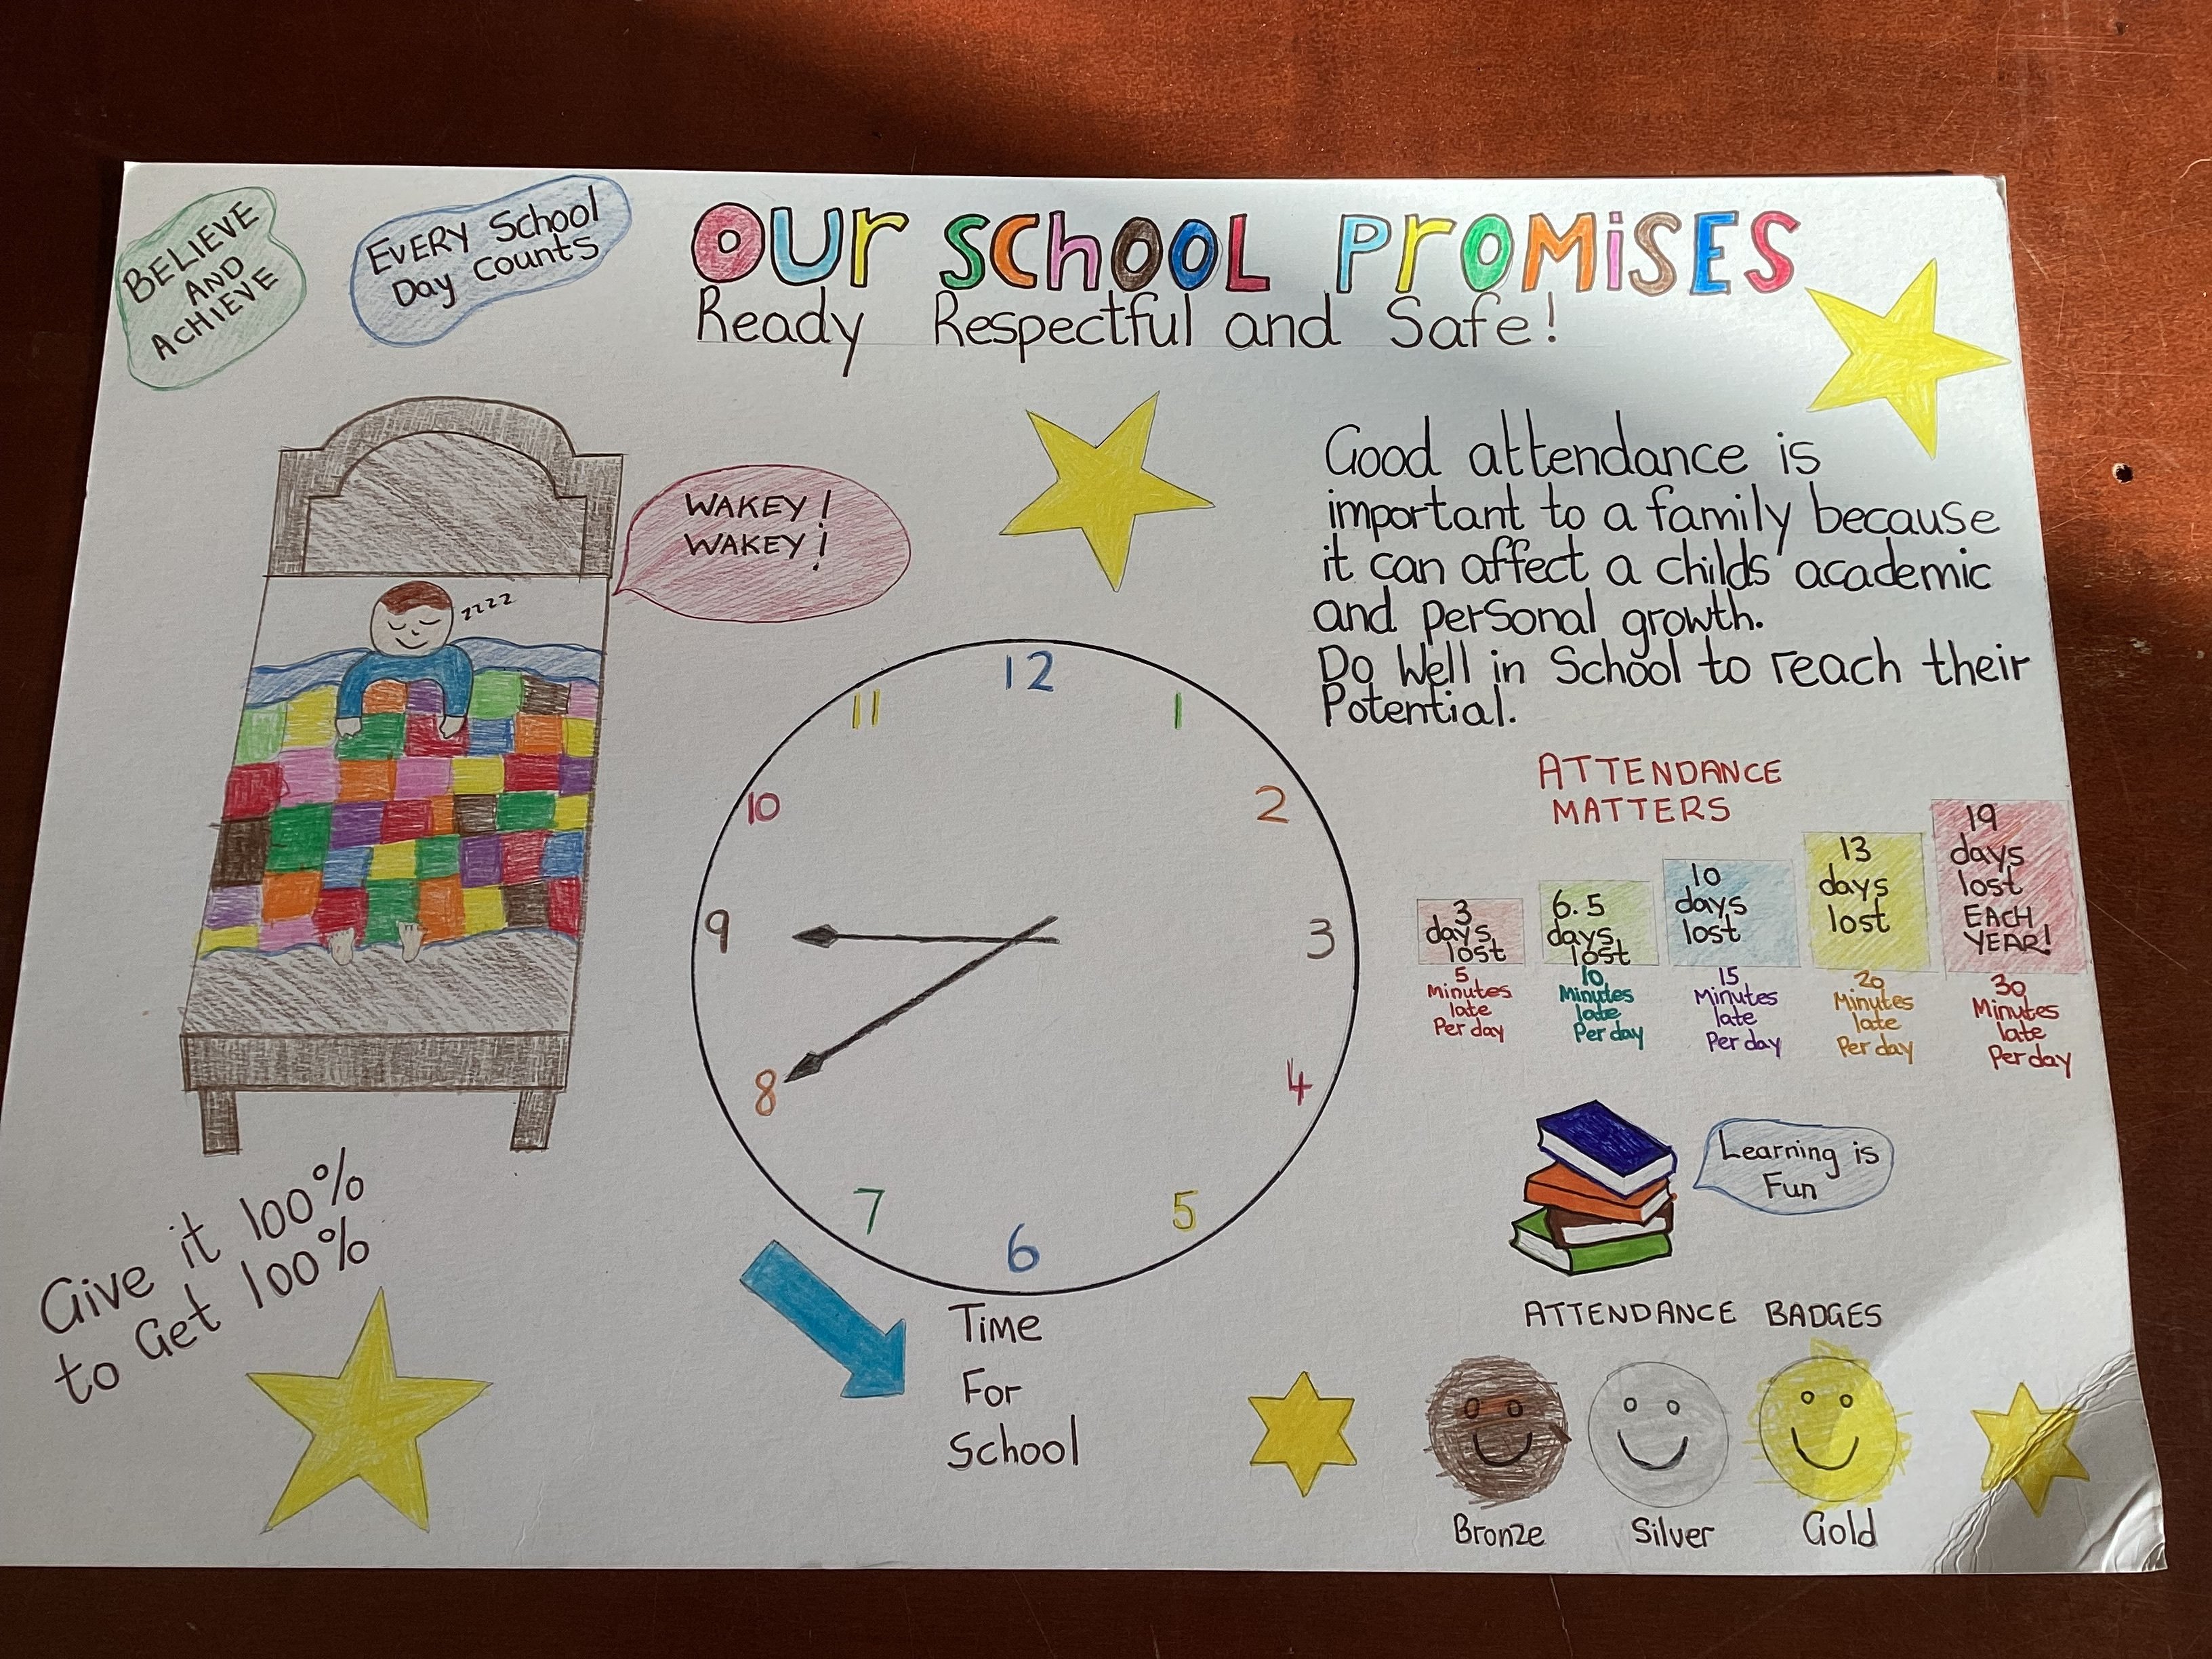 BELIEVE
AND
ACHIEVE
EVERY School
Day Counts
OUr SChOOL PrOMiSES
Ready Respectful and Safe!
WAKEY!
WAKEY!
zzzz
Good attendance is
important to a family because
it can affect a childs academic
and personal growth.
Do Well in School to reach their
Potential.
12
1
2
3
4
5
6
7
8
9
10
11
ATTENDANCE
MATTERS
3
days
lost
5
Minutes
late
Per day
6.5
days
lost
10
Minutes
late
Per day
10
days
lost
15
Minutes
late
Per day
13
days
lost
20
Minutes
late
Per day
19
days
lost
EACH
YEAR!
30
Minutes
late
Per day
Learning is
Fun
Give it 100%
to Get 100%
Time
For
School
ATTENDANCE BADGES
Bronze
Silver
Gold